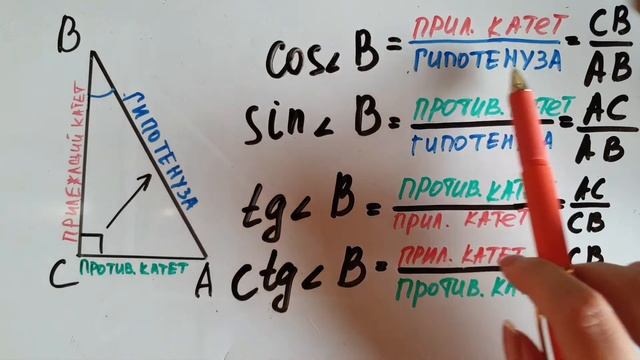 B
ПРИЛЕЖАЩИЙ КАТЕТ
ГИПОТЕНУЗА
C ПРОТИВ. КАТЕТ A
cos∠B = ПРИЛ. КАТЕТ / ГИПОТЕНУЗА = CB / AB
sin∠B = ПРОТИВ. КАТЕТ / ГИПОТЕНУЗА = AC / AB
tg∠B = ПРОТИВ. КАТЕТ / ПРИЛ. КАТЕТ = AC / CB
ctg∠B = ПРИЛ. КАТЕТ / ПРОТИВ. = CB